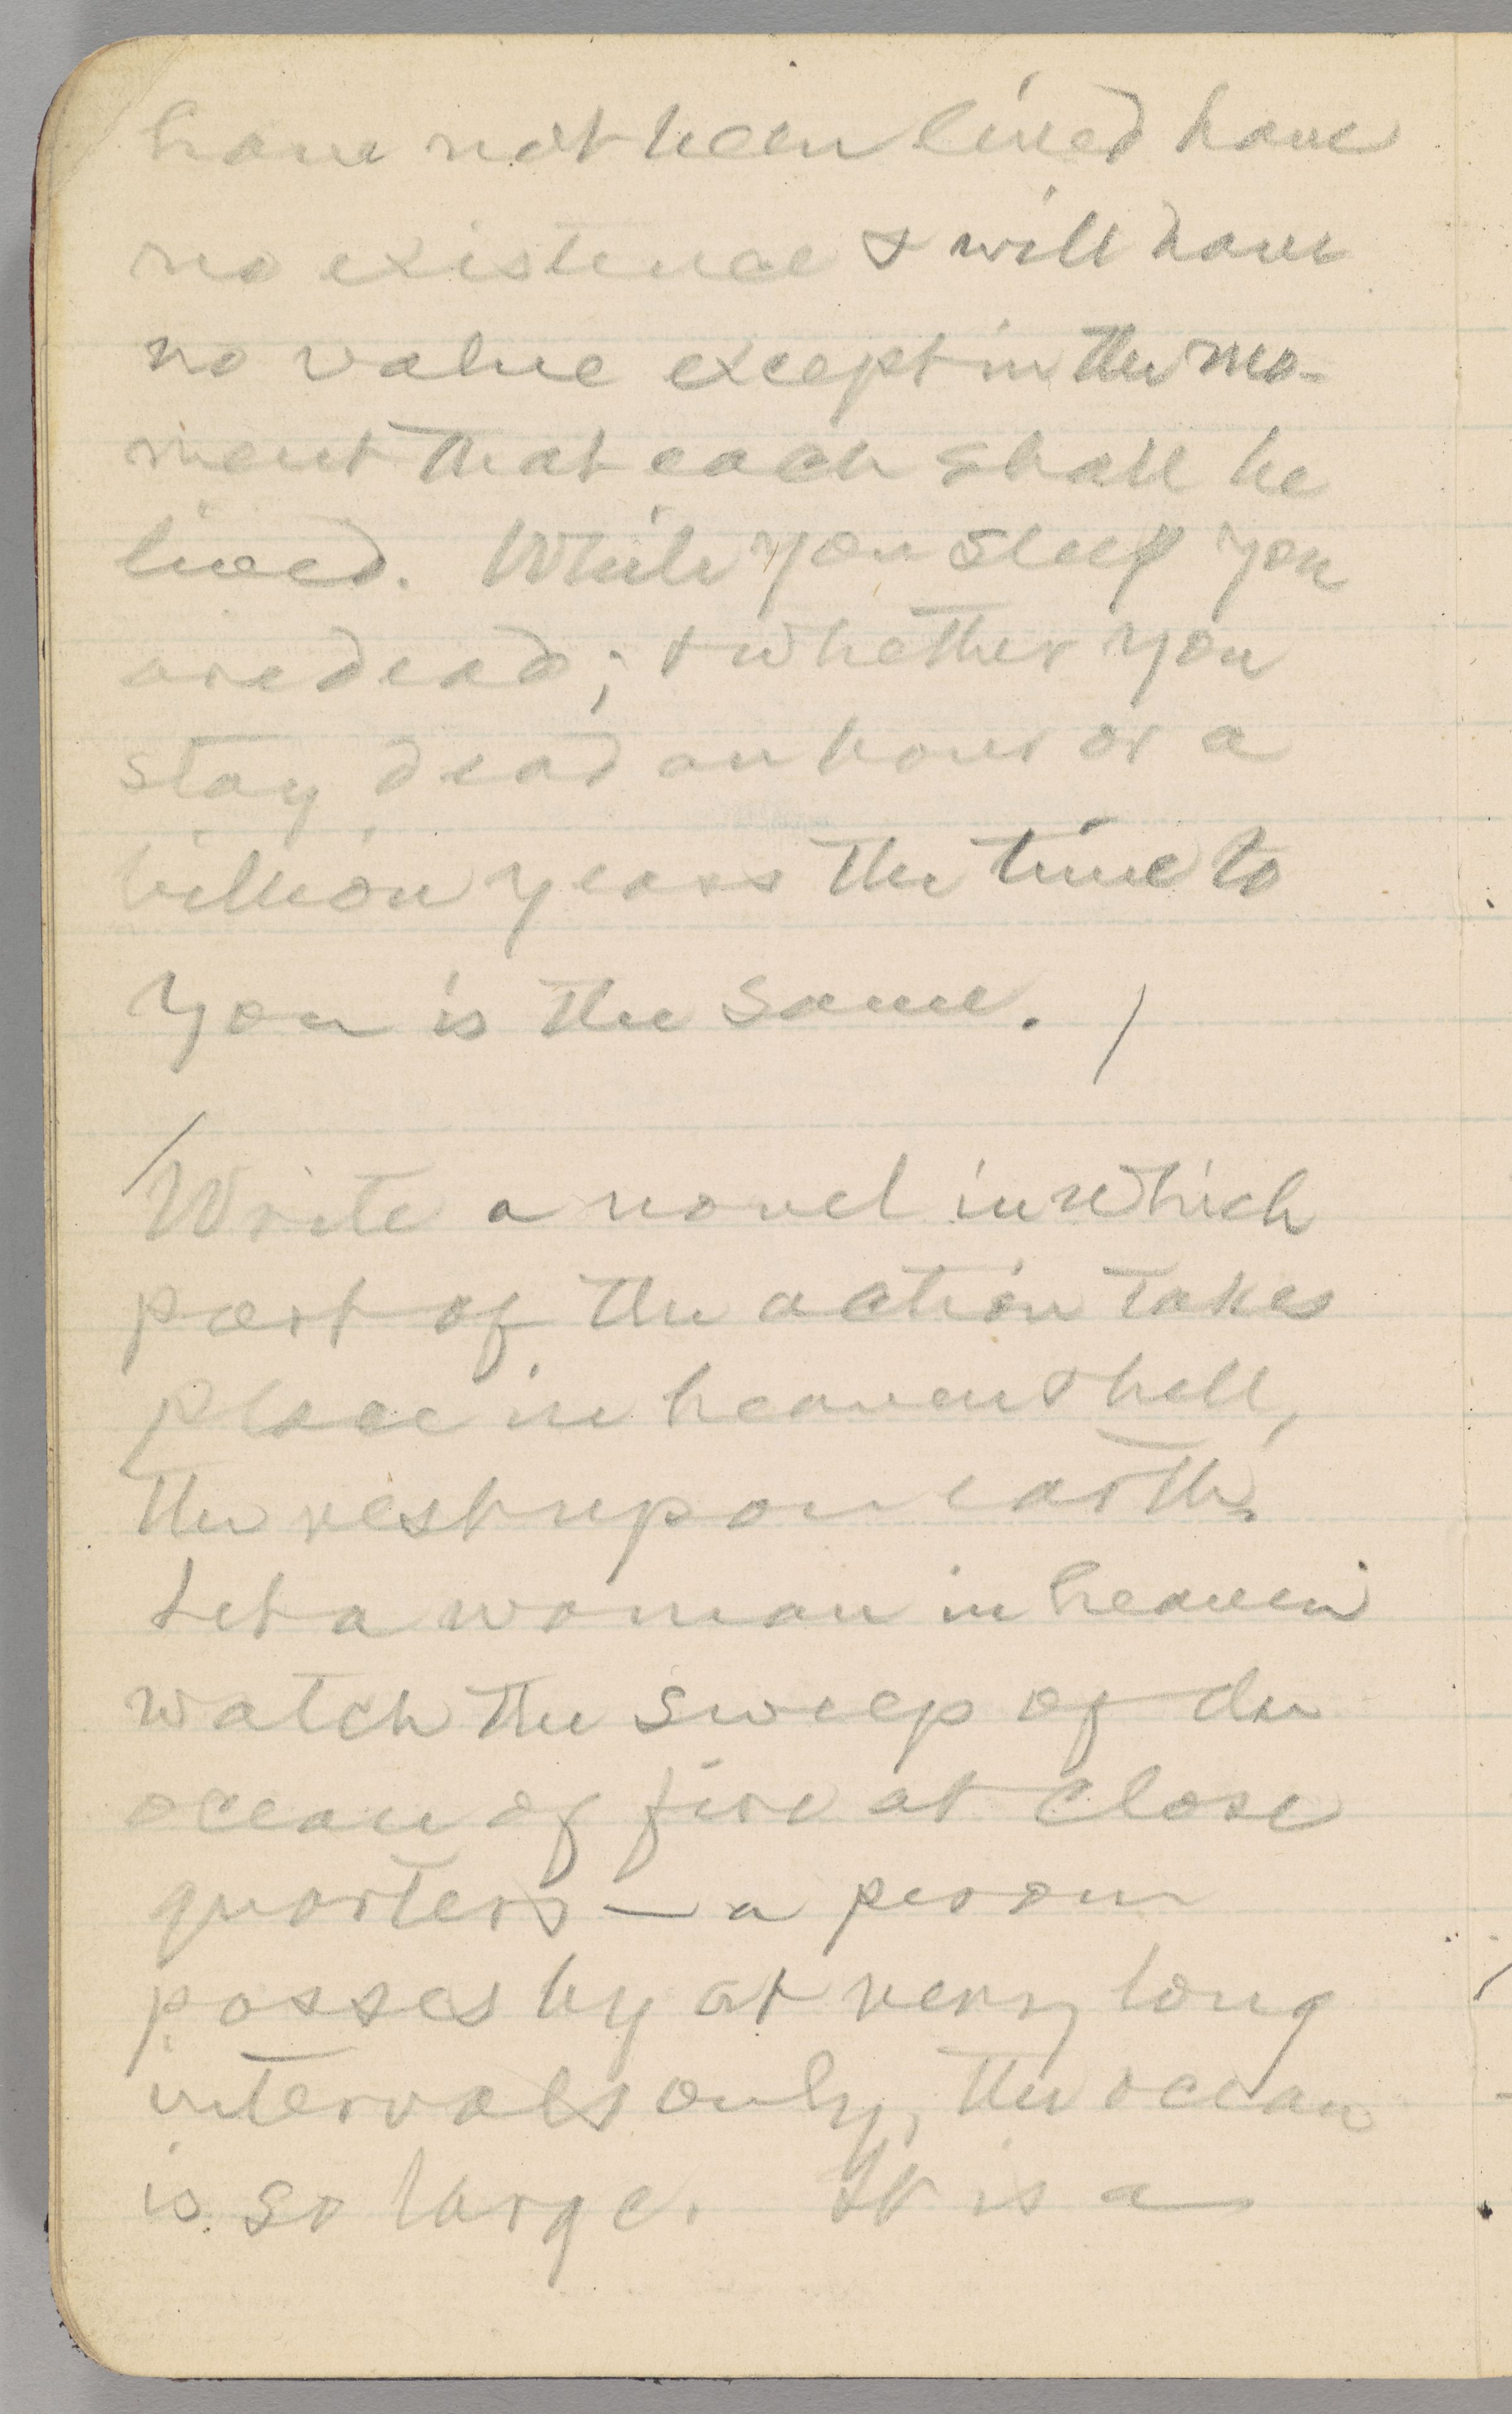 have not been lived have
no existence & will have
no value except in the mo-
ment that each shall be
lived. While you sleep you
are dead; & whether you
stay dead an hour or a
billion years the time to
you is the same. /
/ Write a novel in which
part of the action takes
place in heaven & hell,
the rest upon earth.
Let a woman in heaven
watch the sweep of the
ocean of fire at close
quarters — a person
passes by at very long
intervals only, the ocean
is so large. It is a